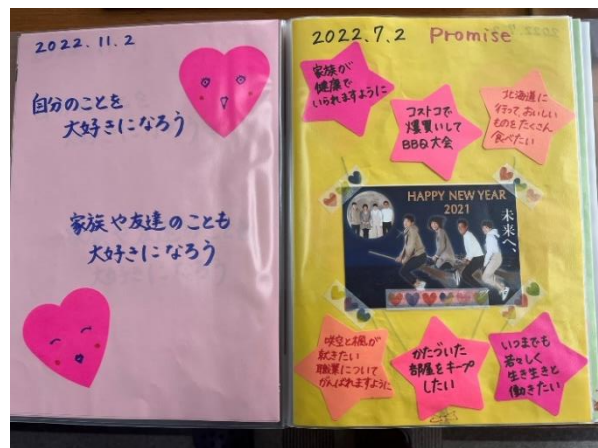 2022.11.2
自分のことを
大好きになろう
家族や友達のことも
大好きになろう
2022.7.2 Promise
家族が
健康で
いられますように
コストコで
爆買いして
BBQ大会
北海道に
行って、おいしい
ものをたくさん
食べたい
HAPPY NEW YEAR
2021
未来へ、
咲空と楓が
就きたい
職業について
がんばれますように
かたづいた
部屋をキープ
したい
いつまでも
若々しく
生き生きと
働きたい